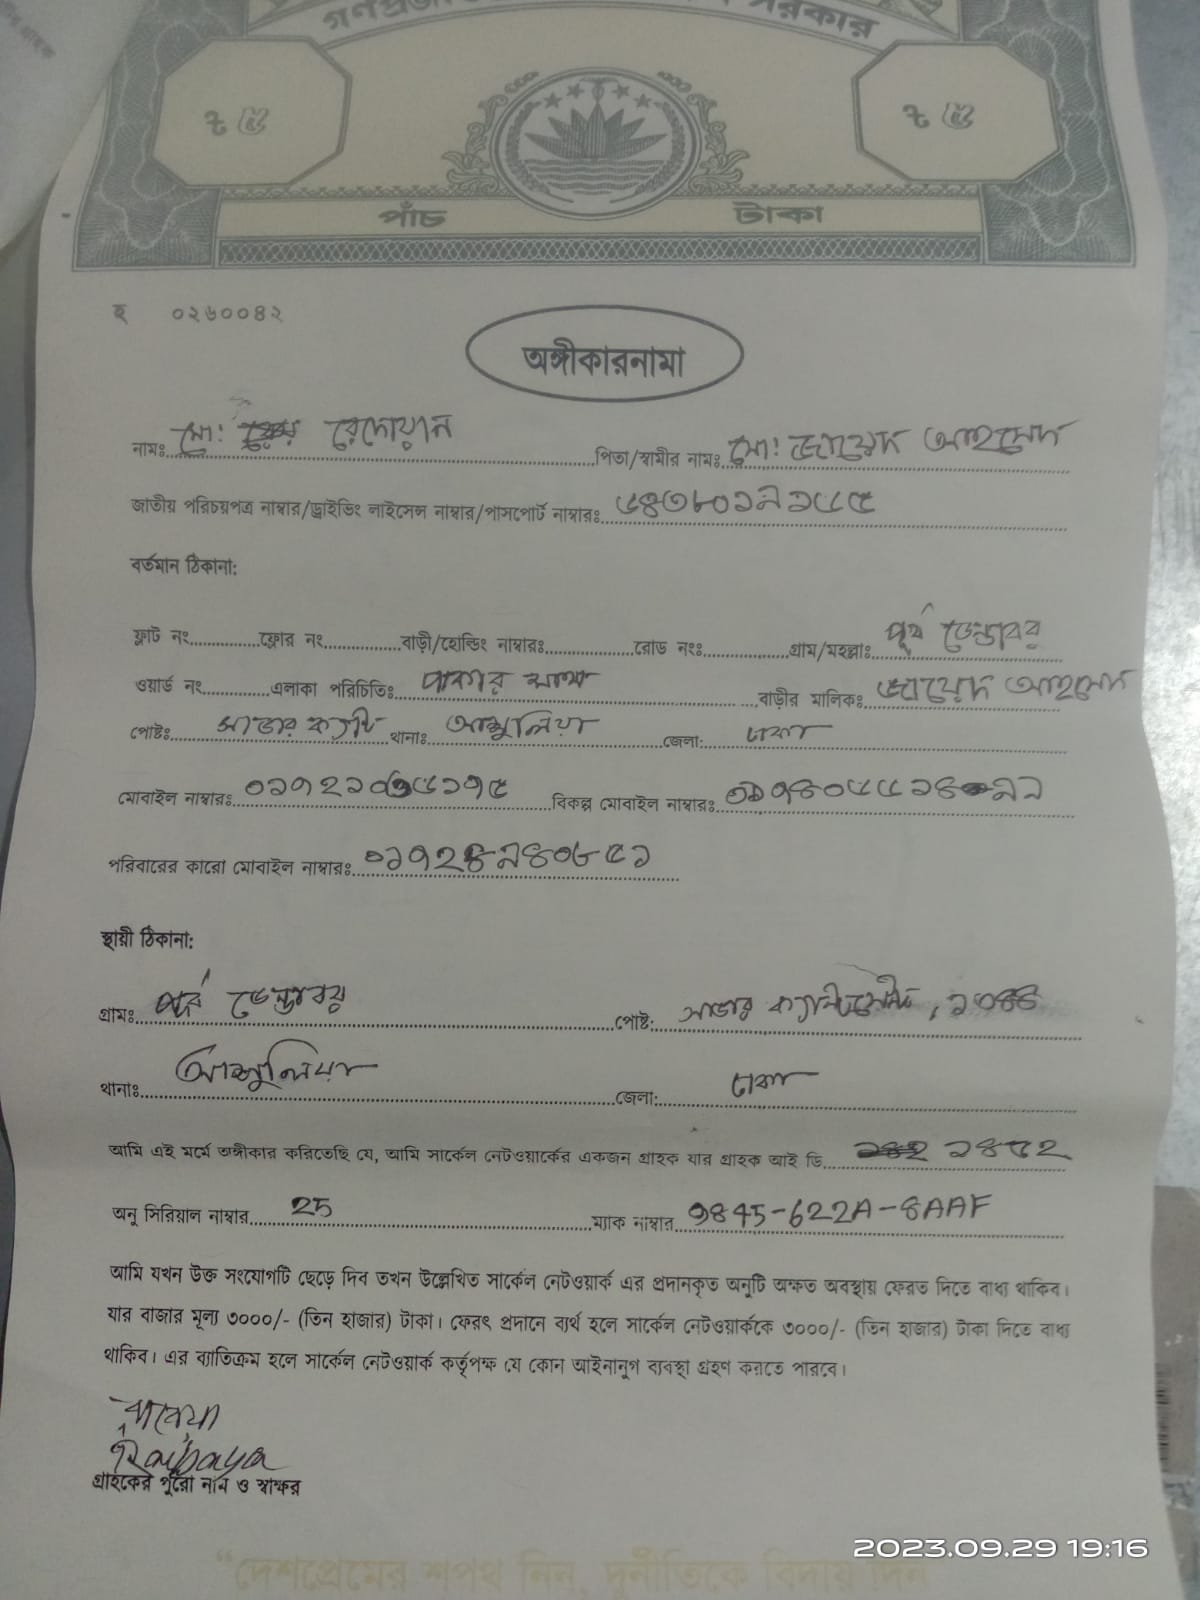 সরকার
৳ ৫ ৳ ৫
পাঁচ টাকা
হ ০২৬০০৪২
অঙ্গীকারনামা
নামঃ মো: রেদোয়ান পিতা/স্বামীর নামঃ মো: জায়েদ আহমেদ
জাতীয় পরিচয়পত্র নাম্বার/ড্রাইভিং লাইসেন্স নাম্বার/পাসপোর্ট নাম্বারঃ
বর্তমান ঠিকানা:
ফ্লাট নং ফ্লোর নং বাড়ী/হোল্ডিং নাম্বারঃ রোড নংঃ গ্রাম/মহল্লাঃ পূর্ব ডেন্ডাবর
ওয়ার্ড নং এলাকা পরিচিতিঃ বাড়ীর মালিকঃ জায়েদ আহমেদ
পোষ্টঃ সাভার ক্যান্ট থানাঃ আশুলিয়া জেলা: ঢাকা
মোবাইল নাম্বারঃ বিকল্প মোবাইল নাম্বারঃ
পরিবারের কারো মোবাইল নাম্বারঃ
স্থায়ী ঠিকানা:
গ্রামঃ পূর্ব ডেন্ডাবর পোষ্ট: সাভার ক্যান্টমেন্ট, ১৩৪৪
থানাঃ আশুলিয়া জেলা: ঢাকা
আমি এই মর্মে অঙ্গীকার করিতেছি যে, আমি সার্কেল নেটওয়ার্কের একজন গ্রাহক যার গ্রাহক আই ডি ১৪৫২
অনু সিরিয়াল নাম্বার 25 ম্যাক নাম্বার 9845-622A-8AAF
আমি যখন উক্ত সংযোগটি ছেড়ে দিব তখন উল্লেখিত সার্কেল নেটওয়ার্ক এর প্রদানকৃত অনুটি অক্ষত অবস্থায় ফেরত দিতে বাধ্য থাকিব।
যার বাজার মূল্য ৩০০০/- (তিন হাজার) টাকা। ফেরৎ প্রদানে ব্যর্থ হলে সার্কেল নেটওয়ার্ককে ৩০০০/- (তিন হাজার) টাকা দিতে বাধ্য
থাকিব। এর ব্যতিক্রম হলে সার্কেল নেটওয়ার্ক কর্তৃপক্ষ যে কোন আইনানুগ ব্যবস্থা গ্রহণ করতে পারবে।
রাবেয়া
Raibaya
গ্রাহকের পুরো নাম ও স্বাক্ষর
2023.09.29 19:16
“দেশপ্রেমের শপথ নিন, দুর্নীতিকে বিদায় দিন